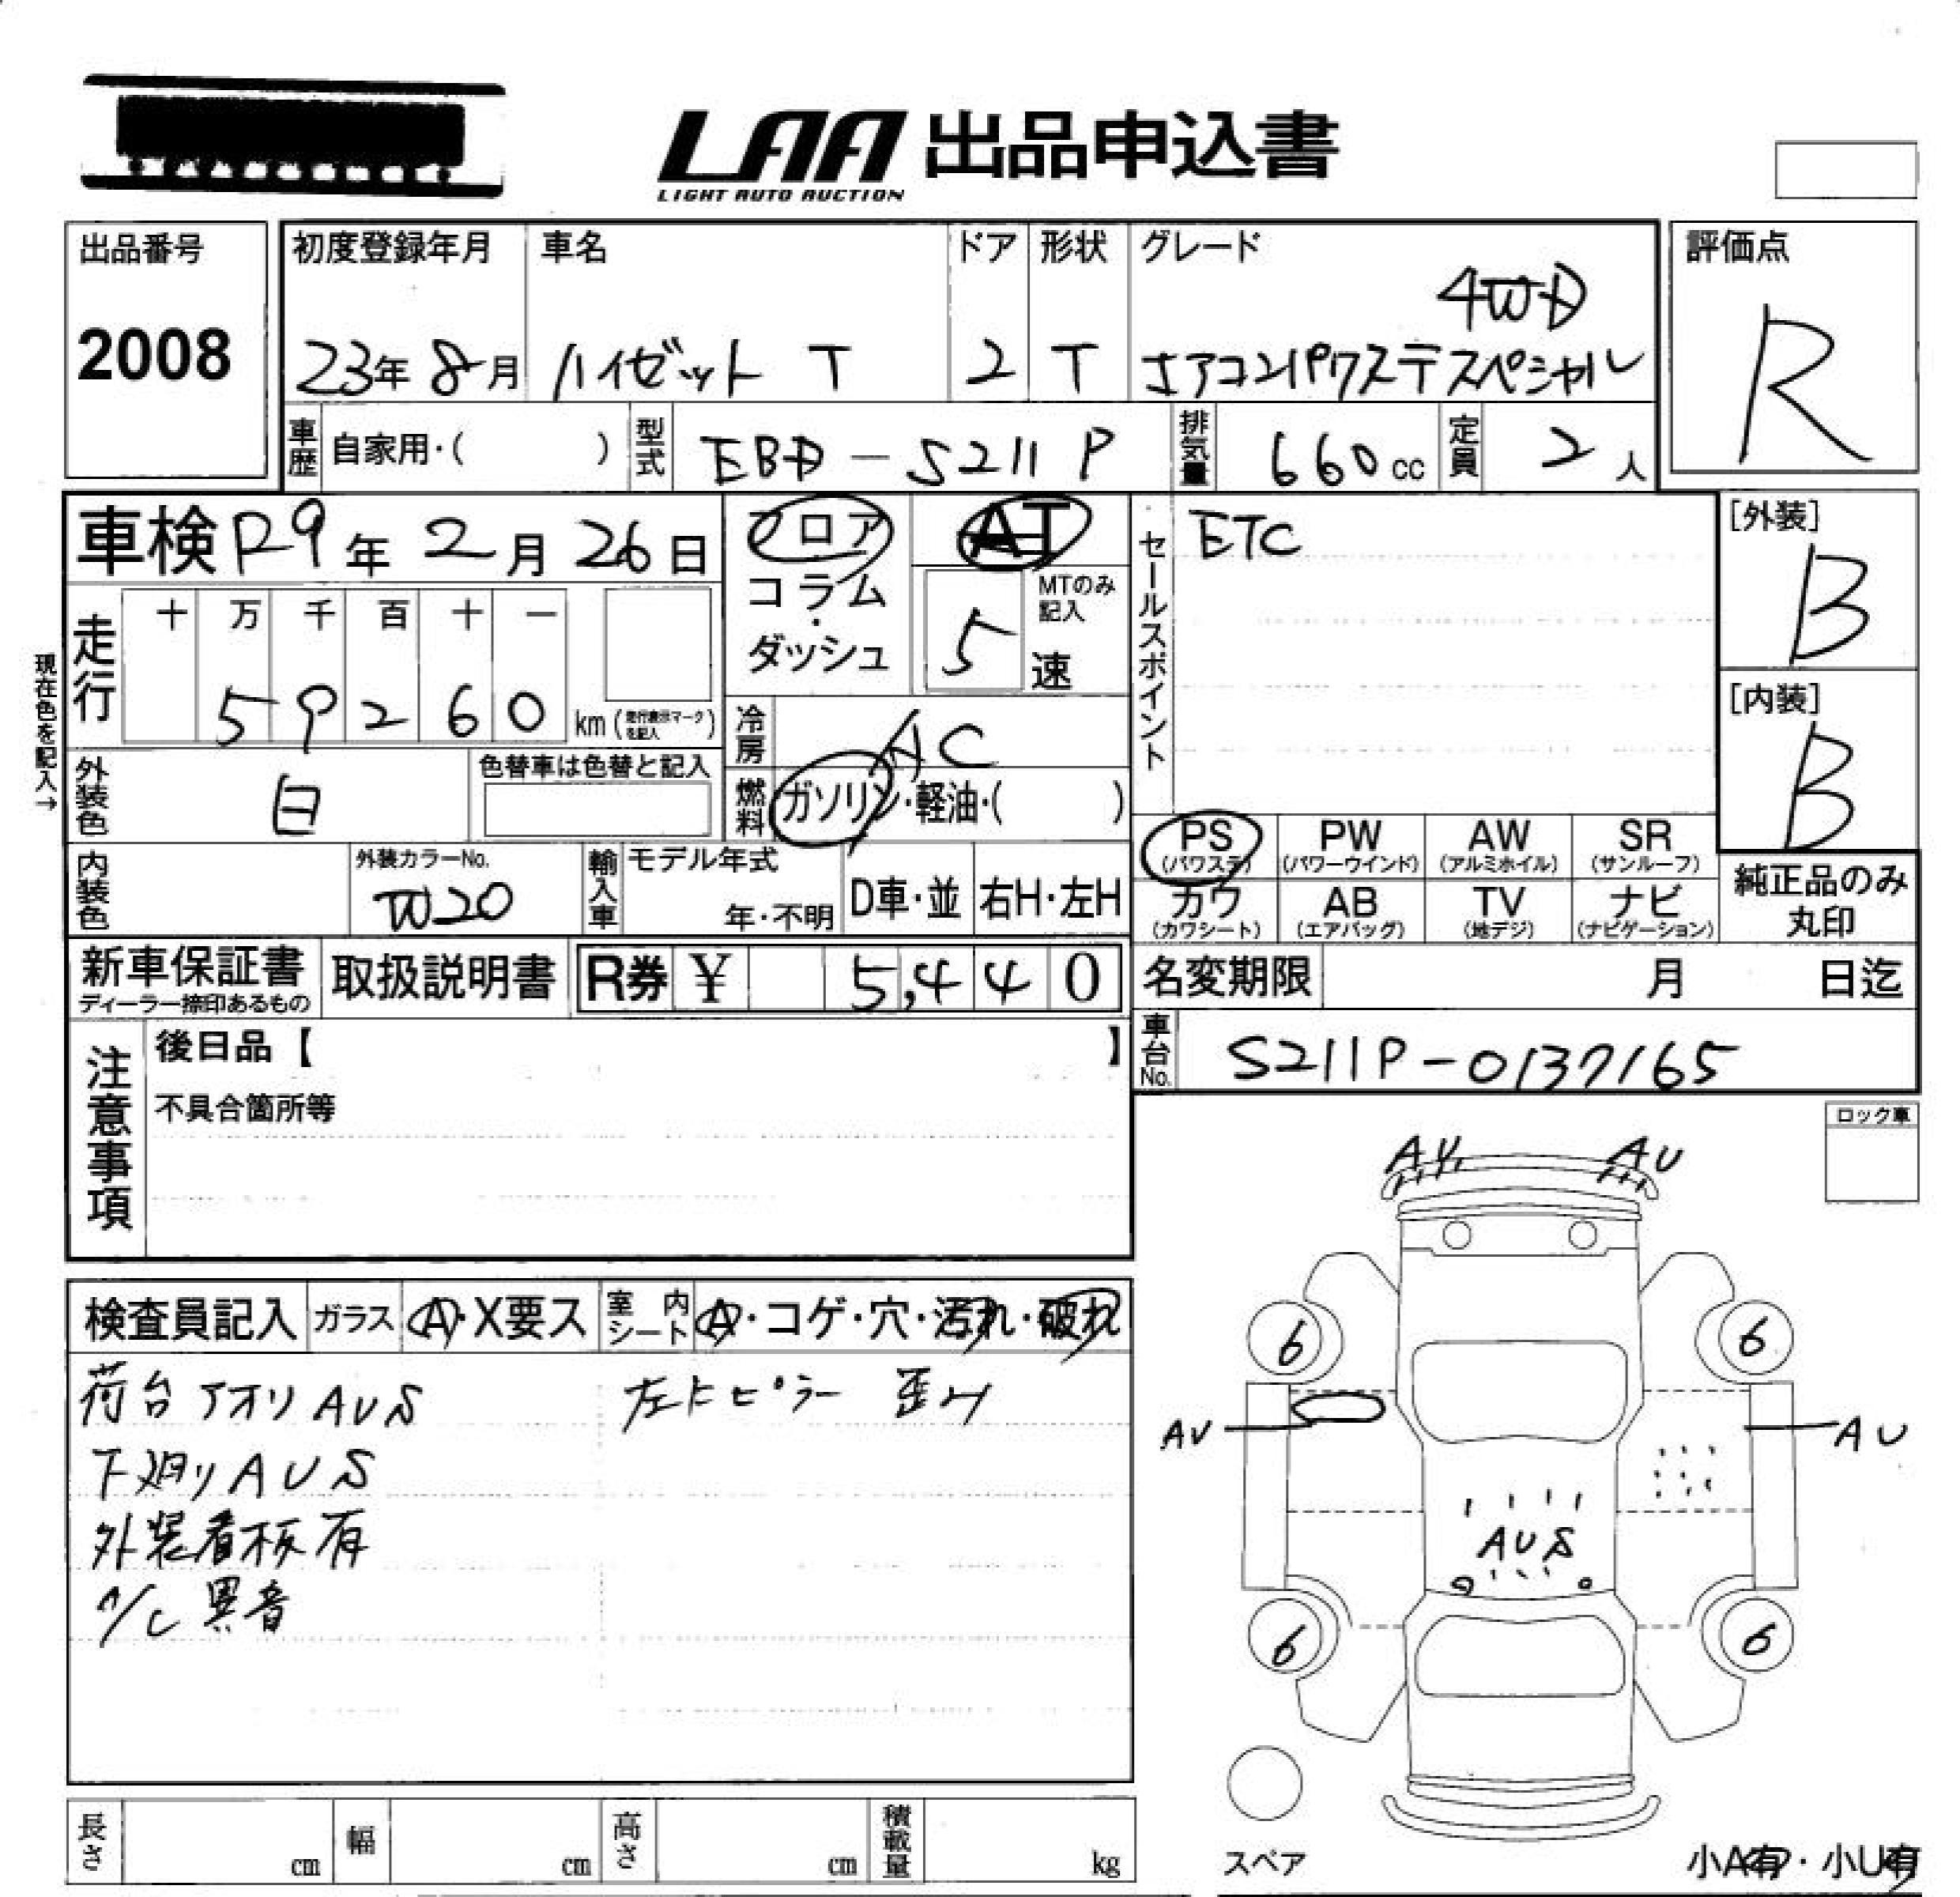 LAA 出品申込書
LIGHT AUTO AUCTION
出品番号
2008
初度登録年月
23年 8月
車名
ハイゼットT
ドア
2
形状
T
グレード
4WD
エアコンパワステスペシャル
評価点
R
車歴
自家用・( )
型式
EBD-S211P
排気量
660cc
定員
2人
車検 R9年 2月 26日
フロア
コラム
・
ダッシュ
AT
MTのみ
記入
5速
セールスポイント
ETC
[外装]
B
[内装]
B
現在色を記入→
走行
十 万 千 百 十 一
5 9 2 6 0 km (走行表示マークを記入)
冷房
AC
外装色
白
色替車は色替と記入
燃料
ガソリン・軽油・( )
PS
(パワステ)
PW
(パワーウインド)
AW
(アルミホイル)
SR
(サンルーフ)
カワ
(カワシート)
AB
(エアバッグ)
TV
(地デジ)
ナビ
(ナビゲーション)
純正品のみ
丸印
内装色
外装カラーNo.
W20
輸入車
モデル年式
年・不明
D車・並
右H・左H
新車保証書
ディーラー捺印あるもの
取扱説明書
R券 ¥ 5,440
名変期限 月 日迄
車台No.
S211P-0137165
注意事項
後日品【 】
不具合箇所等
ロック車
AU AU
6 6
AU AU
AUS
6 6
スペア
小A有・小U有
検査員記入
ガラス
A・X要ス
室内シート
A・コゲ・穴・汚れ・破れ
荷台アオリAUS
左Fピラー 歪み
下廻りAUS
外装看板有
A/C 異音
長さ cm
幅 cm
高さ cm
積載量 kg